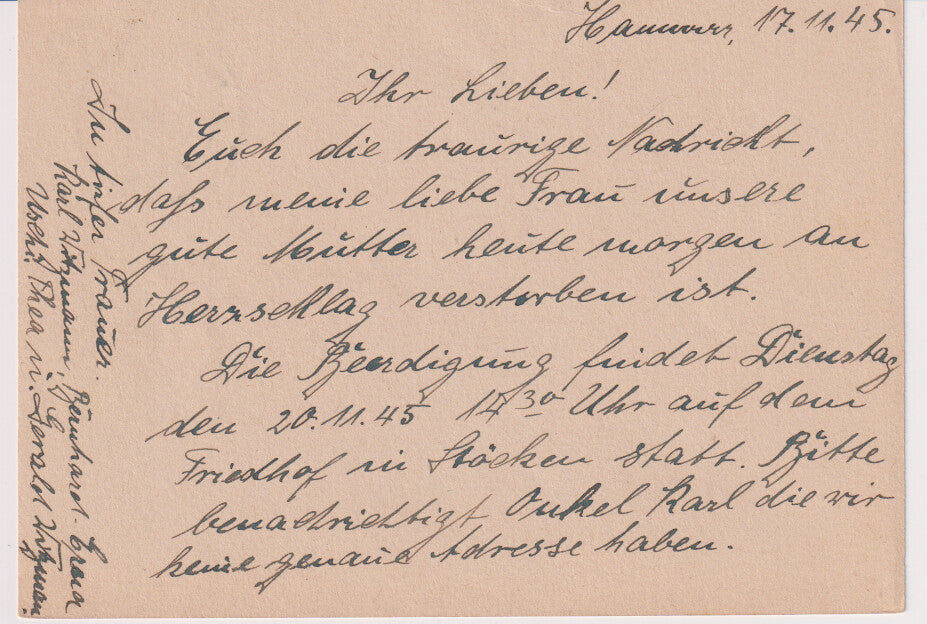 Hannover, 17.11.45.
Ihr Lieben!
Euch die traurige Nachricht,
daß meine liebe Frau unsere
gute Mutter heute morgen an
Herzschlag verstorben ist.
Die Beerdigung findet Dienstag
den 20.11.45 14³⁰ Uhr auf dem
Friedhof in Stöcken statt. Bitte
benachrichtigt Onkel Karl die wir
keine genaue Adresse haben.
In tiefer Trauer.
Karl Witzmann, Bernhard.
Uschi, Thea u. Gerald Witzman.